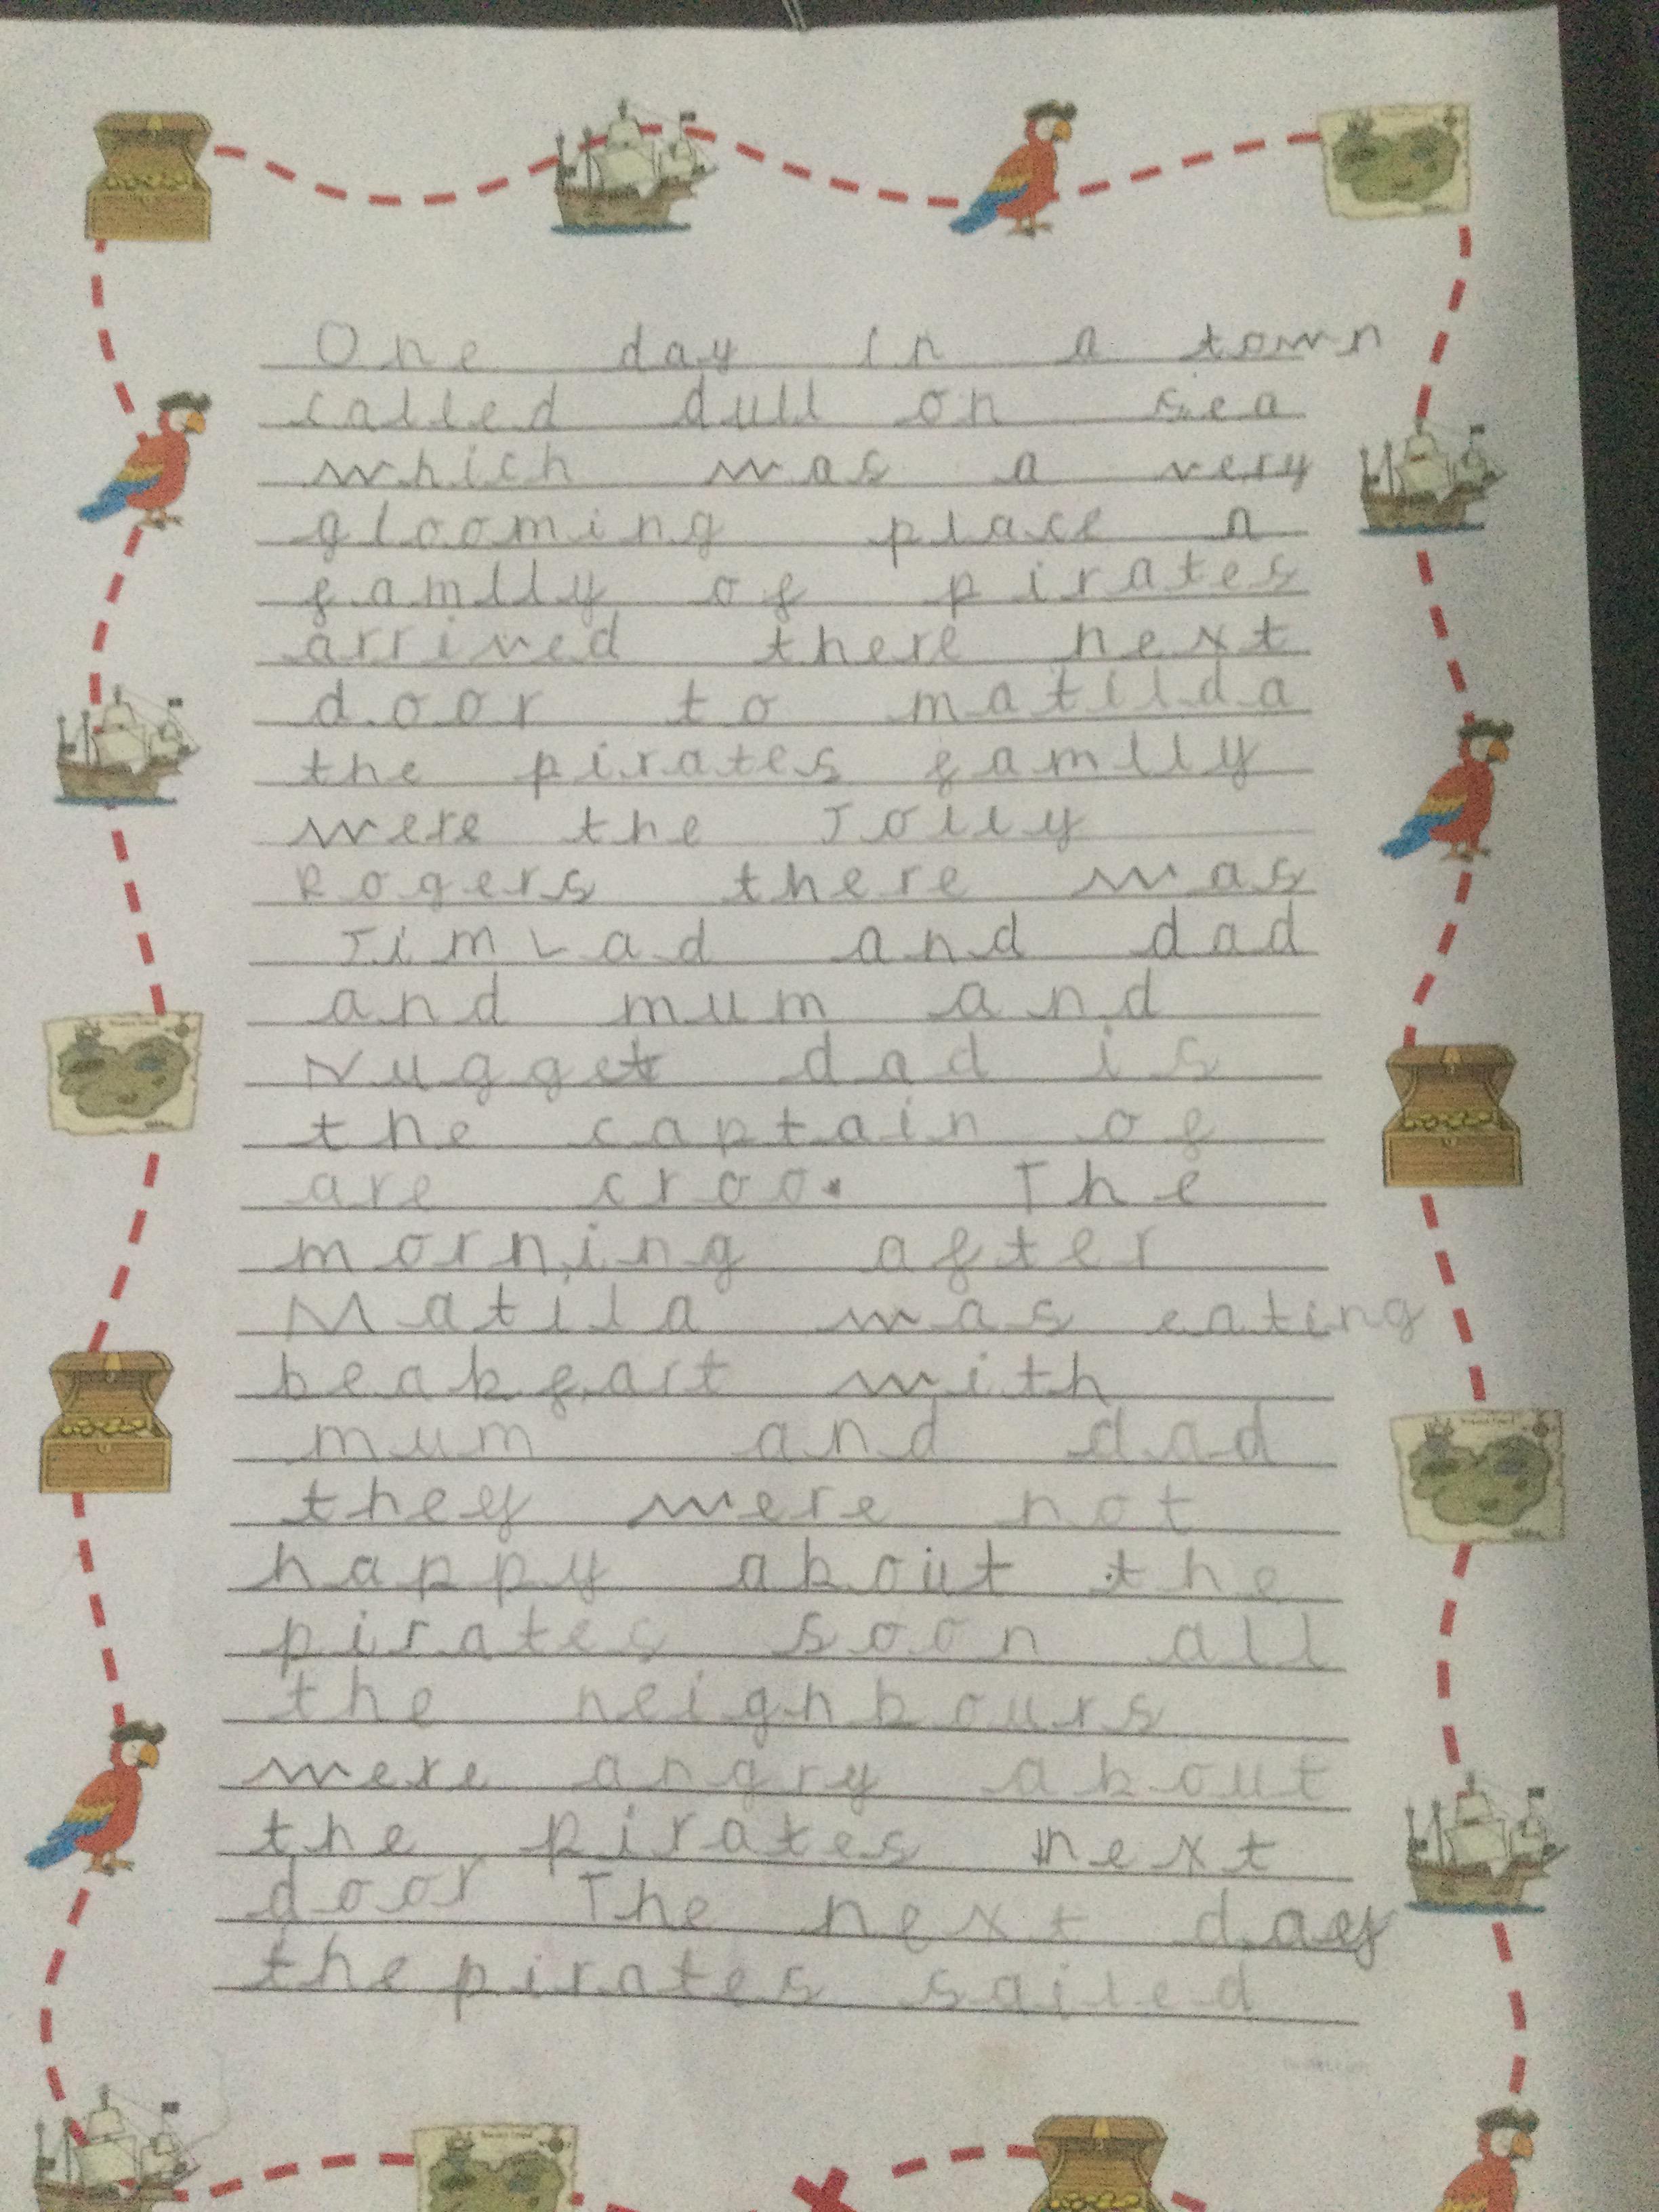 One day in a town
called dull on sea
which was a very
glooming place a
familly of pirates
arrived there next
door to matilda
the pirates familly
were the Jolly
Rogers there was
Jim Lad and dad
and mum and
Nugget dad is
the captain of
are croo. The
morning after
Matila was eating
beakfart with
mum and dad
they were not
happy about the
pirates soon all
the neighbours
were angry about
the pirates next
door The next day
the pirates sailed